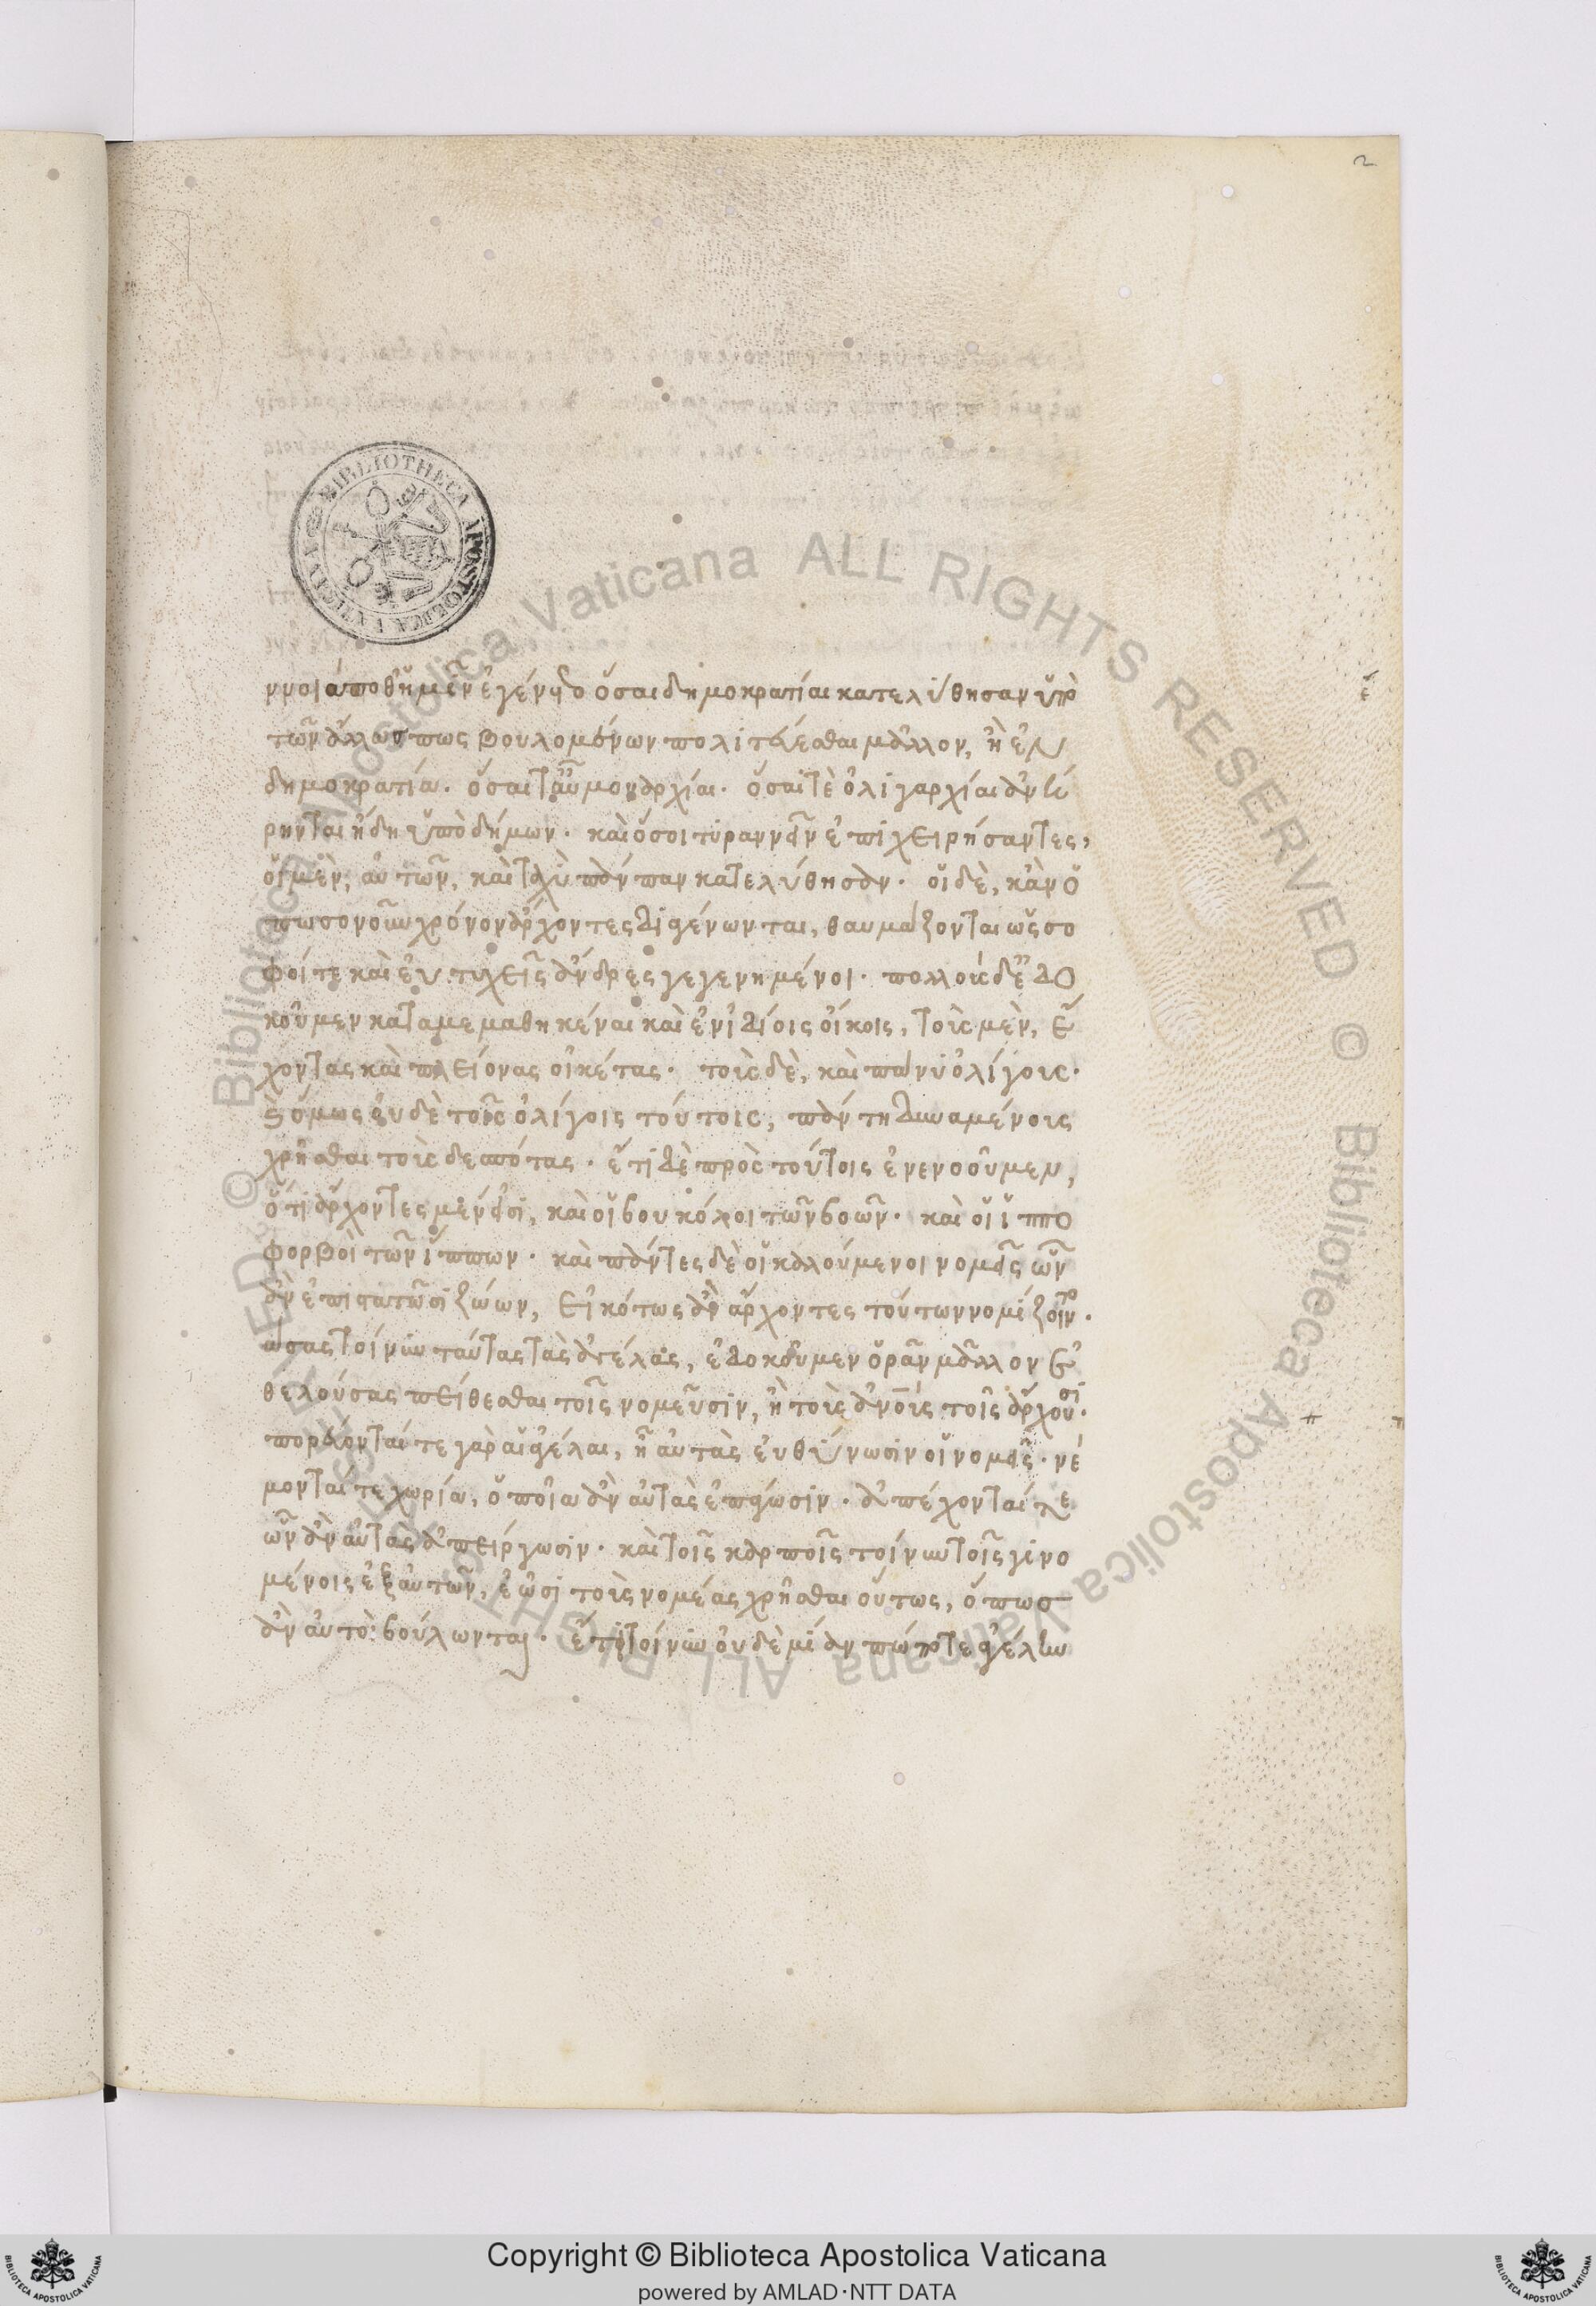 2
ννοια ποθ' ἡμῖν ἐγένετο ὅσαι δημοκρατίαι κατελύθησαν ὑπὸ
τῶν ἄλλως πως βουλομένων πολιτεύεσθαι μᾶλλον, ἢ ἐν
δημοκρατία. ὅσαι τ' αὖ μοναρχίαι. ὅσαι τὲ ὀλιγαρχίαι ἀνή
ρηνται ἤδη ὑπὸ δήμων. καὶ ὅσοι τυραννεῖν ἐπιχειρήσαντες,
οἱ μὲν, αὐτῶν, καὶ ταχὺ πάνπαν κατελύθησαν. οἱ δὲ, κἂν ὁ
πωσονοῦν χρόνον ἄρχοντες διαγένωνται, θαυμάζονται ὡς σο
φοί τε καὶ εὐτυχεῖς ἄνδρες γεγενημένοι. πολλοὺς δὲ ἐδο
κοῦμεν καταμεμαθηκέναι καὶ ἐν ἰδίοις οἴκοις, τοὺς μὲν, ἔ
χοντας καὶ πλείονας οἰκέτας. τοὺς δὲ, καὶ πάνυ ὀλίγους.
καὶ ὅμως οὐδὲ τοῖς ὀλίγοις τούτοις, πάν τι δυναμένους
χρῆσθαι τοὺς δεσπότας. ἔτι δὲ πρὸς τούτοις ἐνενοοῦμεν,
ὅτι ἄρχοντες μέν εἰσι, καὶ οἱ βουκόλοι τῶν βοῶν. καὶ οἱ ἱππο
φορβοὶ τῶν ἵππων. καὶ πάντες δὲ οἱ καλούμενοι νομεῖς ὧν
ἂν ἐπιστατῶσι ζώων, εἰκότως ἂν ἄρχοντες τούτων νομίζοιντο.
πάσας τοίνυν ταύτας τὰς ἀγέλας, ἐδοκοῦμεν ὁρᾶν μᾶλλον ἐ
θελούσας πείθεσθαι τοῖς νομεῦσιν, ἢ τοὺς ἀνους τοῖς ἄρχουσι.
πορεύονταί τε γὰρ αἱ ἀγέλαι, ᾗ αὐτὰς εὐθύνωσιν οἱ νομεῖς. νέ
μονταί τε χωρία, ὁποῖα ἂν αὐτὰς ἐπάγωσιν. ἀπέχονταί τε
ὧν ἂν αὐτὰς ἀπείργωσιν. καὶ τοῖς καρποῖς τοίνυν τοῖς γινο
μένοις ἐξ αὐτῶν, ἐῶσι τοὺς νομέας χρῆσθαι οὕτως, ὅπως
ἂν αὐτοὶ βούλωνται. ἔτι τοίνυν οὐδὲ μίαν πώποτε ἀγέλην
BIBLIOTHECA APOSTOLICA VATICANA
© Biblioteca Apostolica Vaticana ALL RIGHTS RESERVED
Copyright © Biblioteca Apostolica Vaticana
powered by AMLAD·NTT DATA
BIBLIOTECA APOSTOLICA VATICANA
BIBLIOTECA APOSTOLICA VATICANA